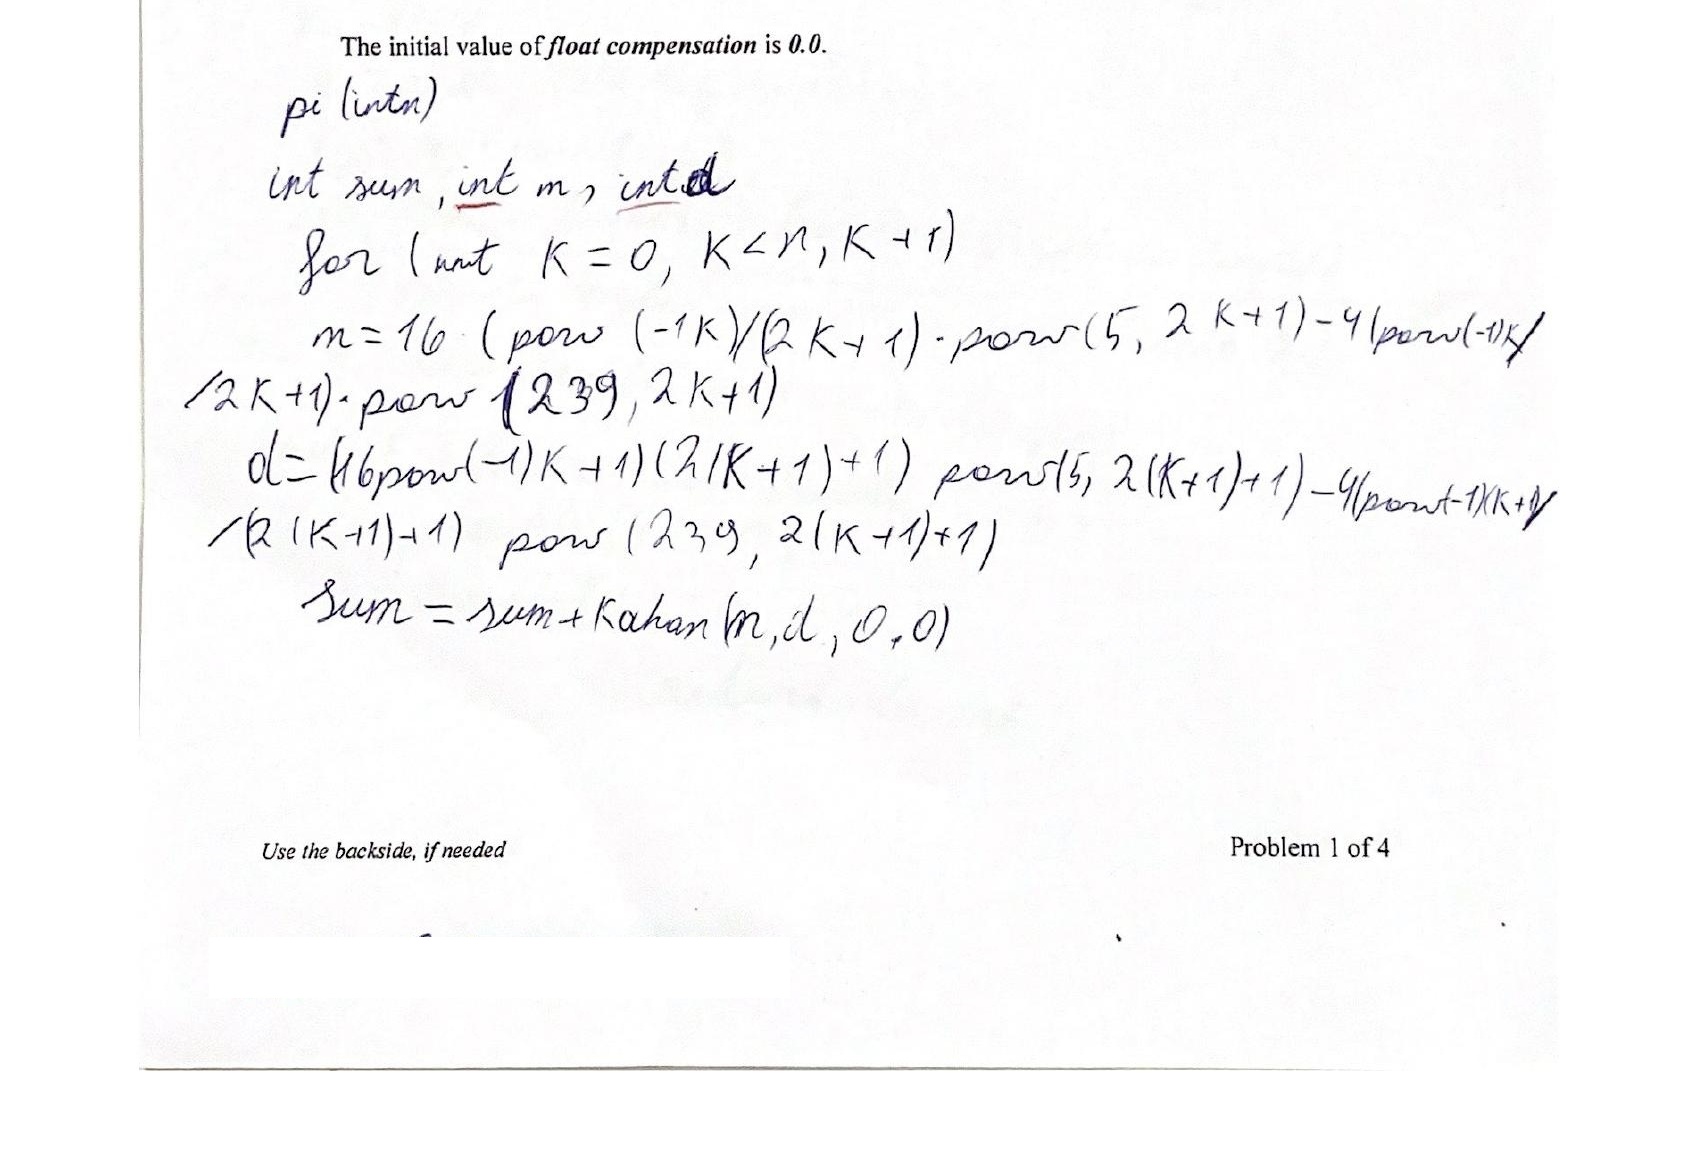 The initial value of float compensation is 0.0.
pi (int n)
int sum, int m, int d
for (int K = 0, K < n, K + 1)
m = 16 · (pow (-1K)/(2K+1) · pow(5, 2K+1) - 4(pow(-1)K/
/2K+1) · pow (239, 2K+1)
d = (16pow(-1)K+1)(2(K+1)+1) pow(5, 2(K+1)+1) - 4(pow(-1)(K+1)/
/(2(K+1)+1) pow (239, 2(K+1)+1)
Sum = sum + Kahan (m, d, 0.0)
Use the backside, if needed
Problem 1 of 4